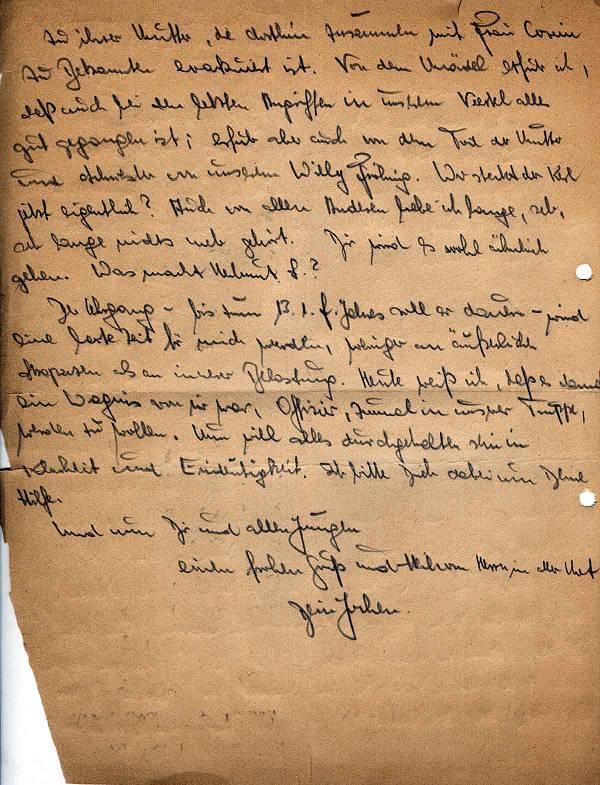 zu ihrer Mutter, die dorthin zusammen mit Frau
zu Bekannten evakuiert ist. Von dem Mädel erfuhr ich,
daß auch bei den letzten Angriffen in unserem Viertel alles
gut gegangen ist; erfuhr aber auch von dem Tod der Mutter
und Schwester von unserem Willy. Wo steckt der Kerl
jetzt eigentlich? Auch von allen Anderen habe ich lange, sehr,
sehr lange nichts mehr gehört. Dir wird es wohl ähnlich
gehen. Was macht Helmut S.?
Der Lehrgang – bis zum 13. 1. f. Jahres soll er dauern – wird
eine harte Zeit für mich werden, weniger an äußerlichen
Strapazen als an innerer Belastung. Heute weiß ich, daß es damals
ein Wagnis von mir war, Offizier, zumal in unserer Truppe,
werden zu wollen. Nun will alles durchgehalten sein in
Klarheit und Eindeutigkeit. Ich bitte Dich dabei um Deine
Hilfe.
Und nun Dir und allen Jungen
einen frohen Gruß und Heil vom Herrn in aller Not
Dein Jochen.